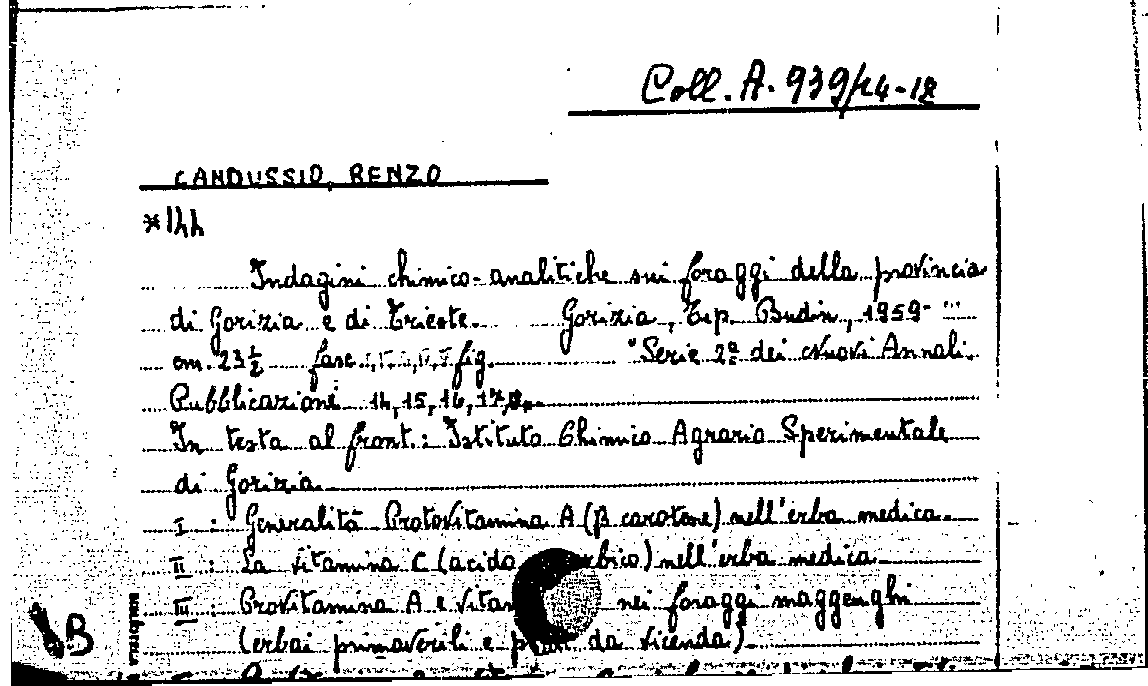 Coll. A. 939/14-18
CANDUSSIO, RENZO
*144
Indagini chimico-analitiche sui foraggi della provincia
di Gorizia e di Trieste. Gorizia, Tip. Budin, 1959-
cm. 23½ fasc. I, II, III, IV, V fig. "Serie 2ª dei Nuovi Annali.
Pubblicazione 14, 15, 16, 17,
In testa al front.: Istituto Chimico Agrario Sperimentale
di Gorizia.
I : Generalità Protovitamina A (β carotone) nell'erba medica.
II : La vitamina C (acido rbico) nell'erba medica
III : Provitamina A e vitam nei foraggi maggenghi
(erbai primaverili e da vicenda)
B